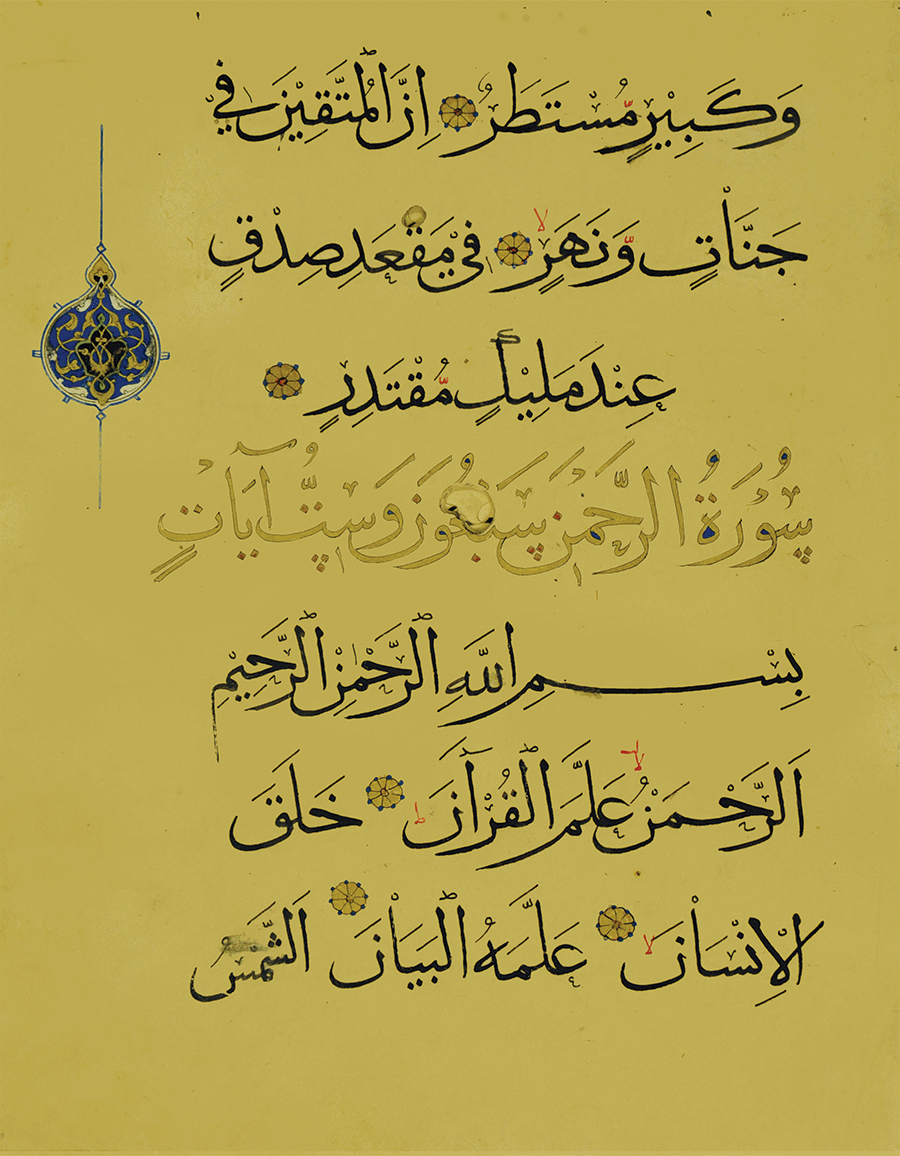 وَكَبِيرٍ مُّسْتَطَرٌ اِنَّ الْمُتَّقِينَ فِي
جَنَّاتٍ وَّنَهَرٍ فِي مَقْعَدِ صِدْقٍ
عِنْدَ مَلِيكٍ مُّقْتَدِرٍ
سُورَةُ الرَّحْمٰنِ سَبْعُونَ وَسِتُّ آيَاتٍ
بِسْمِ اللّٰهِ الرَّحْمٰنِ الرَّحِيمِ
اَلرَّحْمٰنُ عَلَّمَ الْقُرْآنَ خَلَقَ
الْاِنْسَانَ عَلَّمَهُ الْبَيَانَ اَلشَّمْسُ